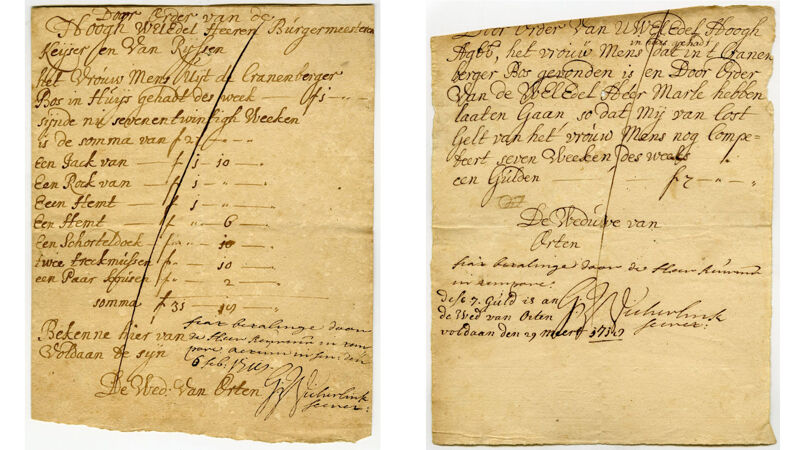 Door Order van de
Hoogh WelEdel Heeren Burgermeesteren
Keijser en Van Rijssen
het Vrouw Mens Uijt de Cranenberger
Bos in Huijs gehabt des week — f 1 „ „
sijnde nu sevenentwintigh Weeken
is de somma van f 27 „ — „
Een Jack van — f 1 — 10 — „
Een Rock van — f 1 — „ — „
Eeen Hemt — f 1 — „ — „
Een Hemt — f „ — 6 — „
Een Schorteldoek — f „ — 10 — „
twee treckmussen f „ — 10 — „
een Paar — f „ — 2 — „
somma f 31 — 19
Bekenne hier van
Voldaan te sijn
fiat betalinge door
de Heer
6 feb.
De Wed: van Orten
Door Order Van UWelEdel Hoogh
Agbb, het vrouw Mens in huis gehadt dat in t Cranen
berger Bos gevonden is en Door Order
Van de WelEdel Heer Marle hebben
laaten Gaan so dat Mij van Cost
Gelt van het vrouw Mens nog Compe-
teert seven Weeken des weeks
een Gulden — f 7 „ — „
De Weduwe van
Orten
fiat betalinge door de Heer
dese 7. Guld is aan
de Wed van Orten
voldaan den 29 meert